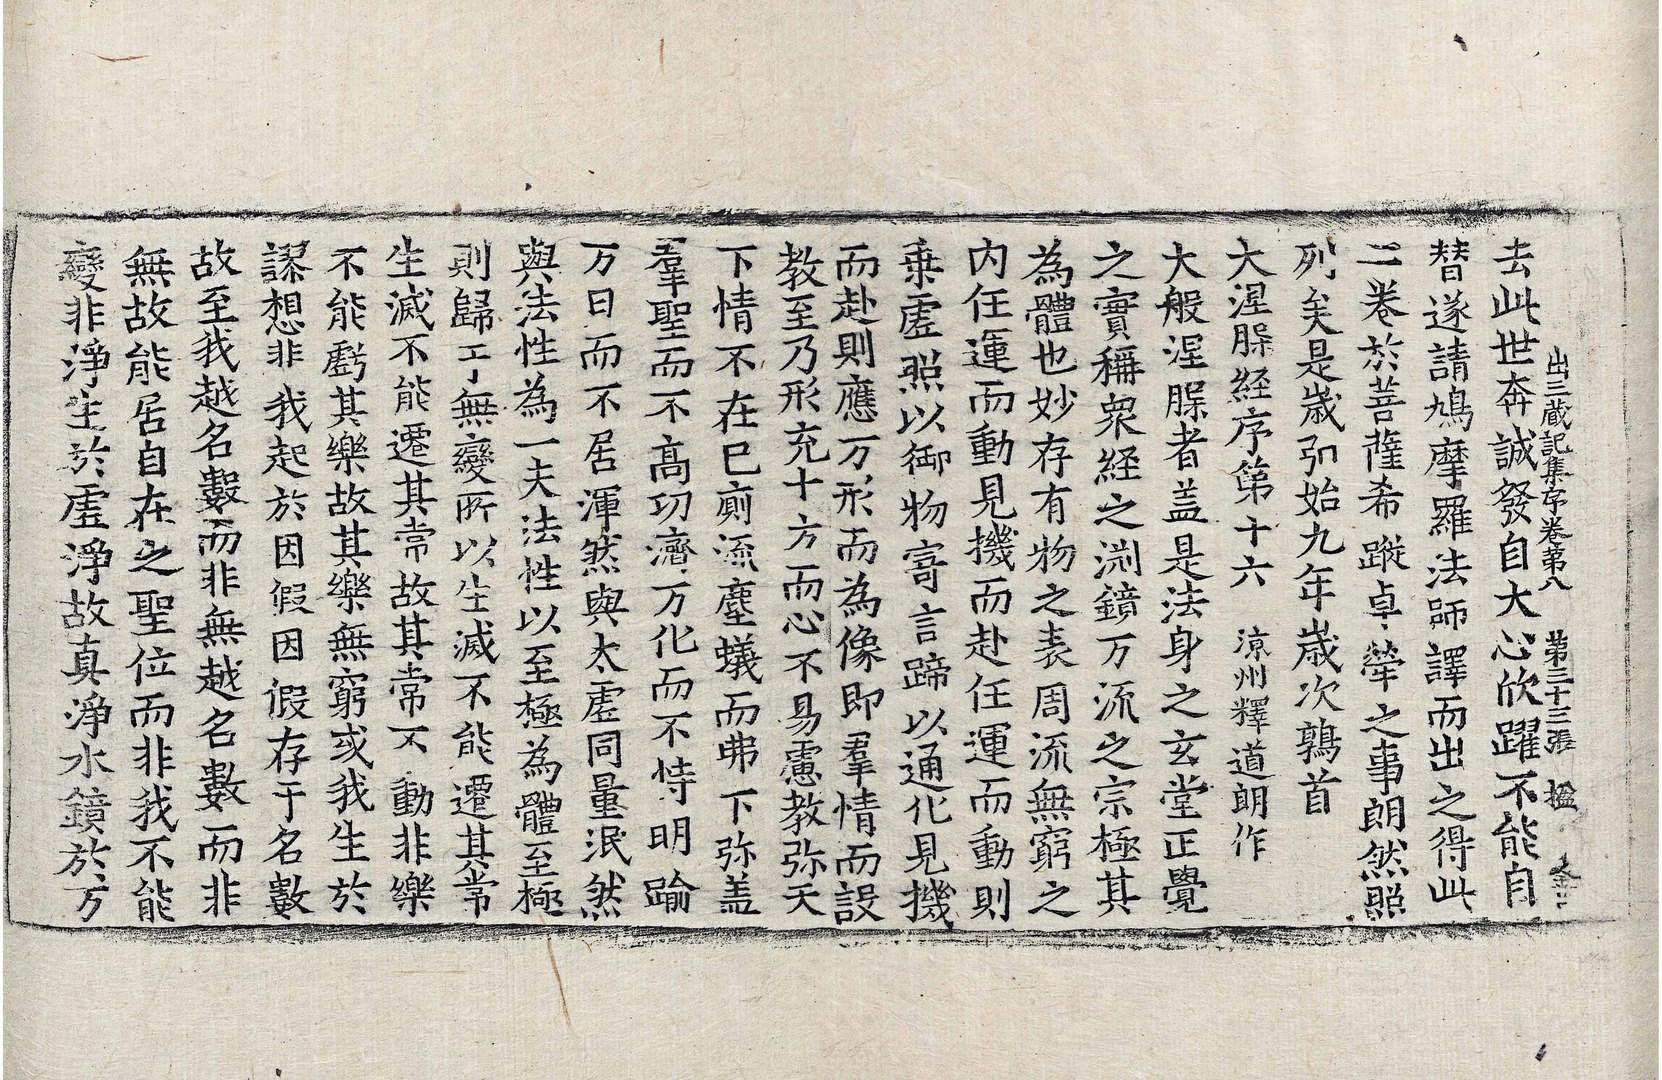 出三藏記集序卷第八　第三十三張　楹
去此世奔誠發自大心欣躍不能自
替遂請鳩摩羅法師譯而出之得此
二卷於菩薩希蹤卓犖之事朗然照
列矣是歲弘始九年歲次鶉首
大涅槃経序第十六　涼州釋道朗作
大般涅槃者盖是法身之玄堂正覺
之實稱衆経之渕鏡万流之宗極其
為體也妙存有物之表周流無窮之
内任運而動見機而赴任運而動則
乗虛照以御物寄言蹄以通化見機
而赴則應万形而為像即羣情而設
教至乃形充十方而心不易慮教弥天
下情不在已廁流塵蟻而弗下弥盖
羣聖而不高功濟万化而不恃明踰
万日而不居渾然與太虛同量泯然
與法性為一夫法性以至極為體至極
則歸于無變所以生滅不能遷其常
生滅不能遷其常故其常不動非樂
不能虧其樂故其樂無窮或我生於
謬想非我起於因假因假存于名數
故至我越名數而非無越名數而非
無故能居自在之聖位而非我不能
變非淨生於虛淨故真淨水鏡於万